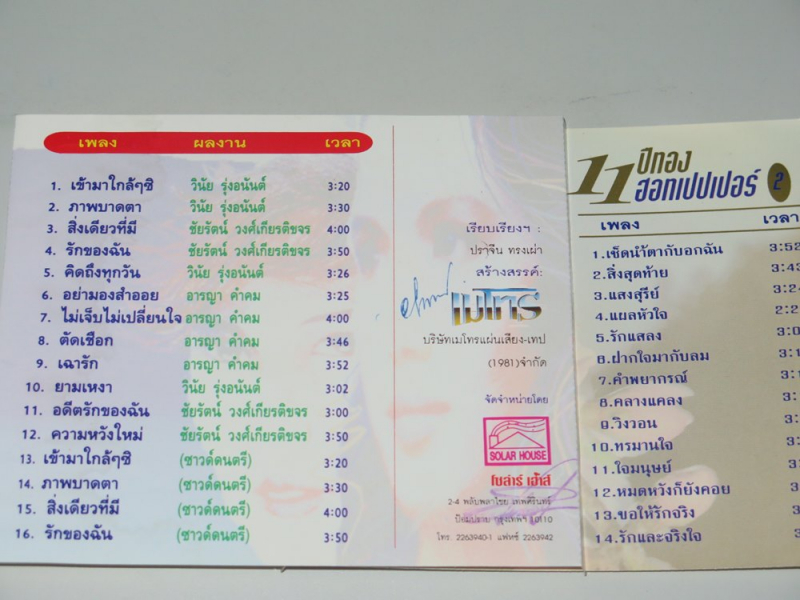 เพลง ผลงาน เวลา
1. เข้ามาใกล้ๆซิ วินัย รุ่งอนันต์ 3:20
2. ภาพบาดตา วินัย รุ่งอนันต์ 3:30
3. สิ่งเดียวที่มี ชัยรัตน์ วงศ์เกียรติขจร 4:00
4. รักของฉัน ชัยรัตน์ วงศ์เกียรติขจร 3:50
5. คิดถึงทุกวัน วินัย รุ่งอนันต์ 3:26
6. อย่ามองสำออย อารญา คำคม 3:25
7. ไม่เจ็บไม่เปลี่ยนใจ อารญา คำคม 4:00
8. ตัดเชือก อารญา คำคม 3:46
9. เฉารัก อารญา คำคม 3:52
10. ยามเหงา วินัย รุ่งอนันต์ 3:02
11. อดีตรักของฉัน ชัยรัตน์ วงศ์เกียรติขจร 3:00
12. ความหวังใหม่ ชัยรัตน์ วงศ์เกียรติขจร 3:50
13. เข้ามาใกล้ๆซิ (ซาวด์ดนตรี) 3:20
14. ภาพบาดตา (ซาวด์ดนตรี) 3:30
15. สิ่งเดียวที่มี (ซาวด์ดนตรี) 4:00
16. รักของฉัน (ซาวด์ดนตรี) 3:50
เรียบเรียงฯ :
ปราจีน ทรงเผ่า
สร้างสรรค์:
เมโทร
บริษัทเมโทรแผ่นเสียง-เทป
(1981)จำกัด
จัดจำหน่ายโดย
SOLAR HOUSE
โซล่าร์ เฮ้าส์
2-4 พลับพลาไชย เทพศิรินทร์
ป้อมปราบ กรุงเทพฯ 10110
โทร. 2263940-1 แฟกซ์ 2263942
11 ปีทอง
ฮอทเปปเปอร์ 2
เพลง เวลา
1.เช็ดน้ำตากับอกฉัน 3:52
2.สิ่งสุดท้าย 3:43
3.แสงสุรีย์ 3:24
4.แผลหัวใจ 2:2
5.รักแสลง 3:0
6.ฝากใจมากับลม 3:1
7.คำพยากรณ์ 3:
8.คลางแคลง 3:
9.วิงวอน 3:
10.ทรมานใจ
11.ใจมนุษย์
12.หมดหวังก็ยังคอย
13.ขอให้รักจริง
14.รักและจริงใจ